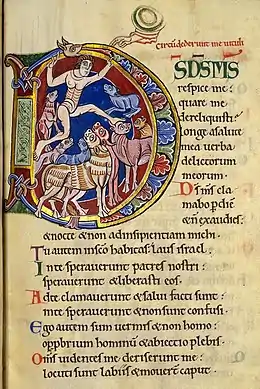 circūdederunt me uituli
D S D̄S M̄S
respice me:
quare me
dereliquisti:
longe a salute
mea uerba
delictorum
meorum.
D̄s m̄s cla
mabo p diē
& n̄ exaudies:
& nocte & non ad insipientiam michi.
Tu autem in sc̄o habitas: laus israel.
In te sperauerunt patres nostri:
sperauerunt & liberasti eos.
Ad te clamauerunt & salui facti sunt:
in te sperauerunt & non sunt confusi.
Ego autem sum uermis & non homo:
opprbrium hominū & abiectio plebis.
Om̄s uidentes me deriserunt me:
locuti sunt labiis & mouert̄ caput.